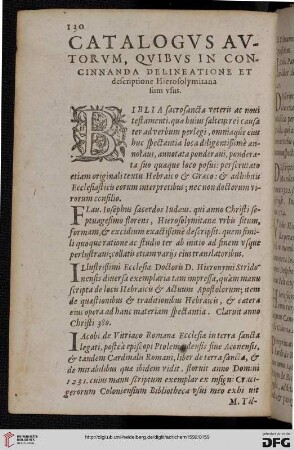 130
CATALOGVS AV-
TORVM, QVIBVS IN CON-
CINNANDA DELINEATIONE ET
descriptione Hierosolymitana
sum vsus.
BIBLIA sacrosancta veteris ac noui
testamenti, quæ huius saltem rei causa
ter ad verbum perlegi, omniaque eius
huc spectantia loca diligentissimè an-
notaui, annotata ponderaui, pondera-
ta suo quaque loco posui: perscrutato
etiam originali textu Hebraico & Græco: & adhibitis
Ecclesiasticis eorum interpretibus; nec non doctorum vi-
rorum consilio.
FLau. Iosephus sacerdos Iudæus, qui anno Christi se-
ptuagesimo florens, Hierosolymitanæ vrbis situm,
formam, & excidium exactissimè descripsit. quem simi-
li quoque ratione ac studio ter ab initio ad finem vsque
perlustraui; collatis etiam varijs eius translatoribus.
ILlustrissimi Ecclesiæ Doctoris D. Hieronymi Strido-
nensis diuersa exemplaria tam impressa, quàm manu
scripta de locis Hebraicis & Actuum Apostolorum; item
de quæstionibus & traditionibus Hebraicis, & cætera
eius opera ad hanc materiam spectantia. Claruit anno
Christi 380.
IAcobi de Vitriaco Romanæ Ecclesiæ in terra sancta
legati, posteà episcopi Ptolemaidensis siue Aconensis,
& tandem Cardinalis Romani, liber de terra sancta, &
de mirabilibus quæ ibidem vidit. floruit anno Domini
1231. cuius manu scriptum exemplar ex insigni Cruci-
gerorum Coloniensium Bibliotheca vsui meo exhibuit
M. Til-
http://digi.ub.uni-heidelberg.de/diglit/adrichem1592/0159
UNIVERSITÄTS-
BIBLIOTHEK
HEIDELBERG
DFG